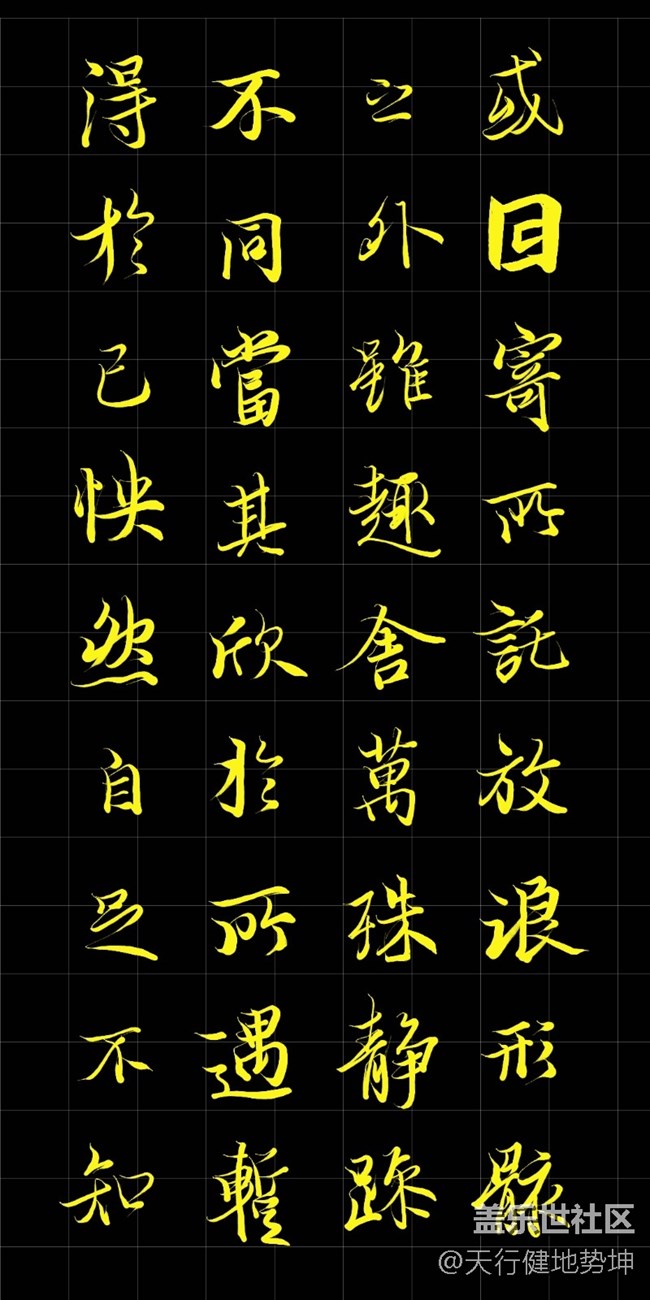 或因寄所託放浪形骸
之外雖趣舍萬殊静躁
不同當其欣於所遇暫
得於己怏然自足不知
盖乐世社区
@天行健地势坤